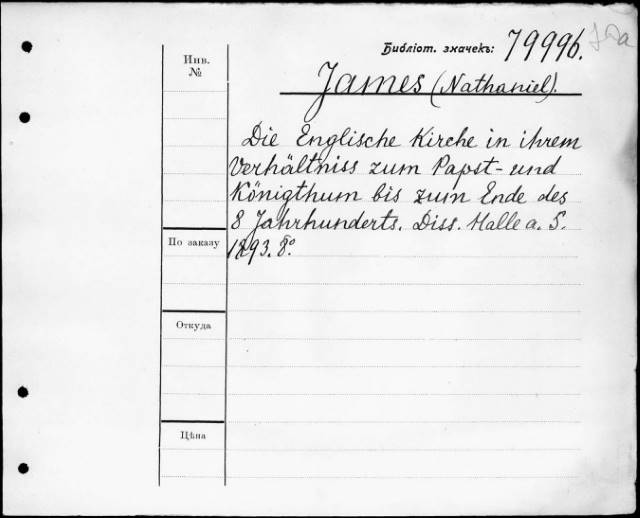 Библіот. значекъ: 79996.
Инв.
№
James (Nathaniel).
Die Englische Kirche in ihrem
Verhältniss zum Papst- und
Königthum bis zum Ende des
8 Jahrhunderts. Diss. Halle a. S.
1893. 8º
По заказу
Откуда
Цѣна